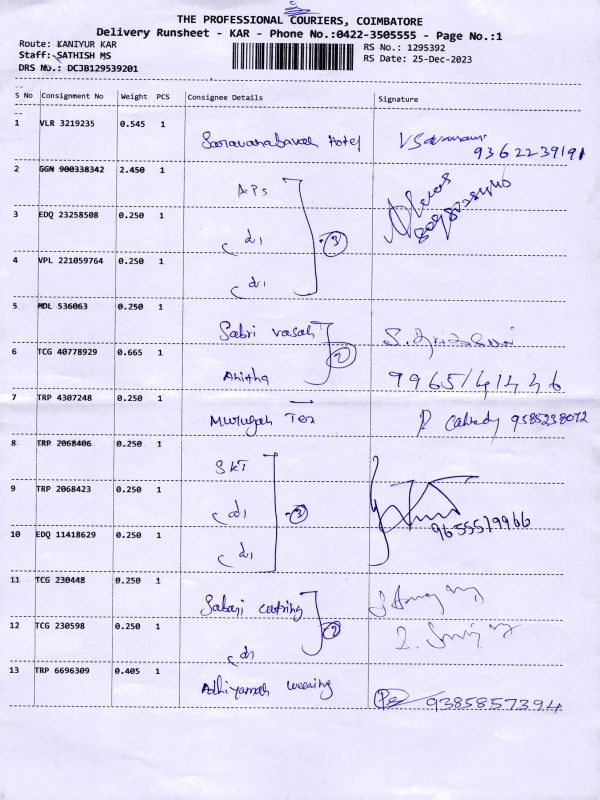 THE PROFESSIONAL COURIERS, COIMBATORE
Delivery Runsheet - KAR - Phone No.:0422-3505555 - Page No.:1
Route: KANIYUR KAR
RS No.: 1295392
Staff: SATHISH MS
RS Date: 25-Dec-2023
DRS No.: DCJB129539201
S No Consignment No Weight PCS Consignee Details Signature
1 VLR 3219235 0.545 1 Saravanabavan Hotel
9362239191
2 GGN 900338342 2.450 1 APs
3 EDQ 23258508 0.250 1 d1 3
4 VPL 221059764 0.250 1 d1
5 MDL 536063 0.250 1 Sabri vasan
6 TCG 40778929 0.665 1 Anitha 2
7 TRP 4307248 0.250 1 Murugan Tex 9385238072
8 TRP 2068406 0.250 1 SKT
9 TRP 2068423 0.250 1 d1 3
10 EDQ 11418629 0.250 1 d1 9655579966
11 TCG 230448 0.250 1 Sabari
12 TCG 230598 0.250 1 d1 2
13 TRP 6696309 0.405 1 Adhiyaman weaving
9385857394